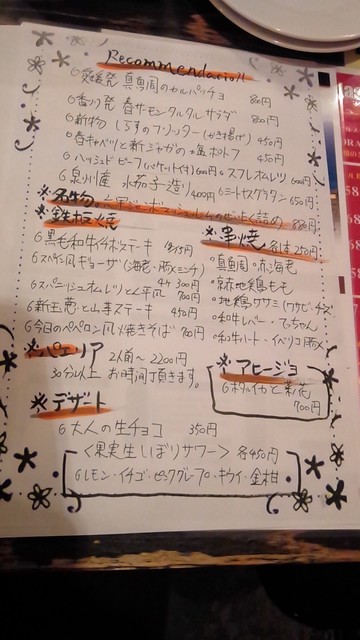 Recommendacio!!
愛媛発 真鯛のカルパッチョ 800円
香川発 春サーモンタルタルサラダ 800円
新物 しらすのフリッター(かき揚げ) 450円
春キャベツと新ジャガの塩ポトフ 450円
ハッシュドビーフ(バケット付) 600円 スフレオムレツ 600円
泉州産 水茄子造り 400円 ミートソスグラタン 650円
※名物 880円
※鉄板焼
黒毛和牛イチボステーキ
スペイン風ギョーザ(海老・豚ミンチ)
4ヶ 300円
スパニッシュオムレツとん平風 700円
新玉葱と山芋ステーキ 450円
今日のペペロン風焼きそば 700円
※串焼 各1本250円
真鯛 赤海老
京赤地鶏もも
地鶏ササミ(ワサビ・チーズ
和牛レバー・てっちゃん
和牛ハート・イベリコ豚
※パエリア 2人前〜2200円
30分以上 お時間頂きます。
※アヒージョ
ホタルイカと菜花
700円
※デザート
大人の生チョコ 350円
<果実生しぼりサワー> 各450円
レモン・イチゴ・ピンクグレープ・キウイ・金柑